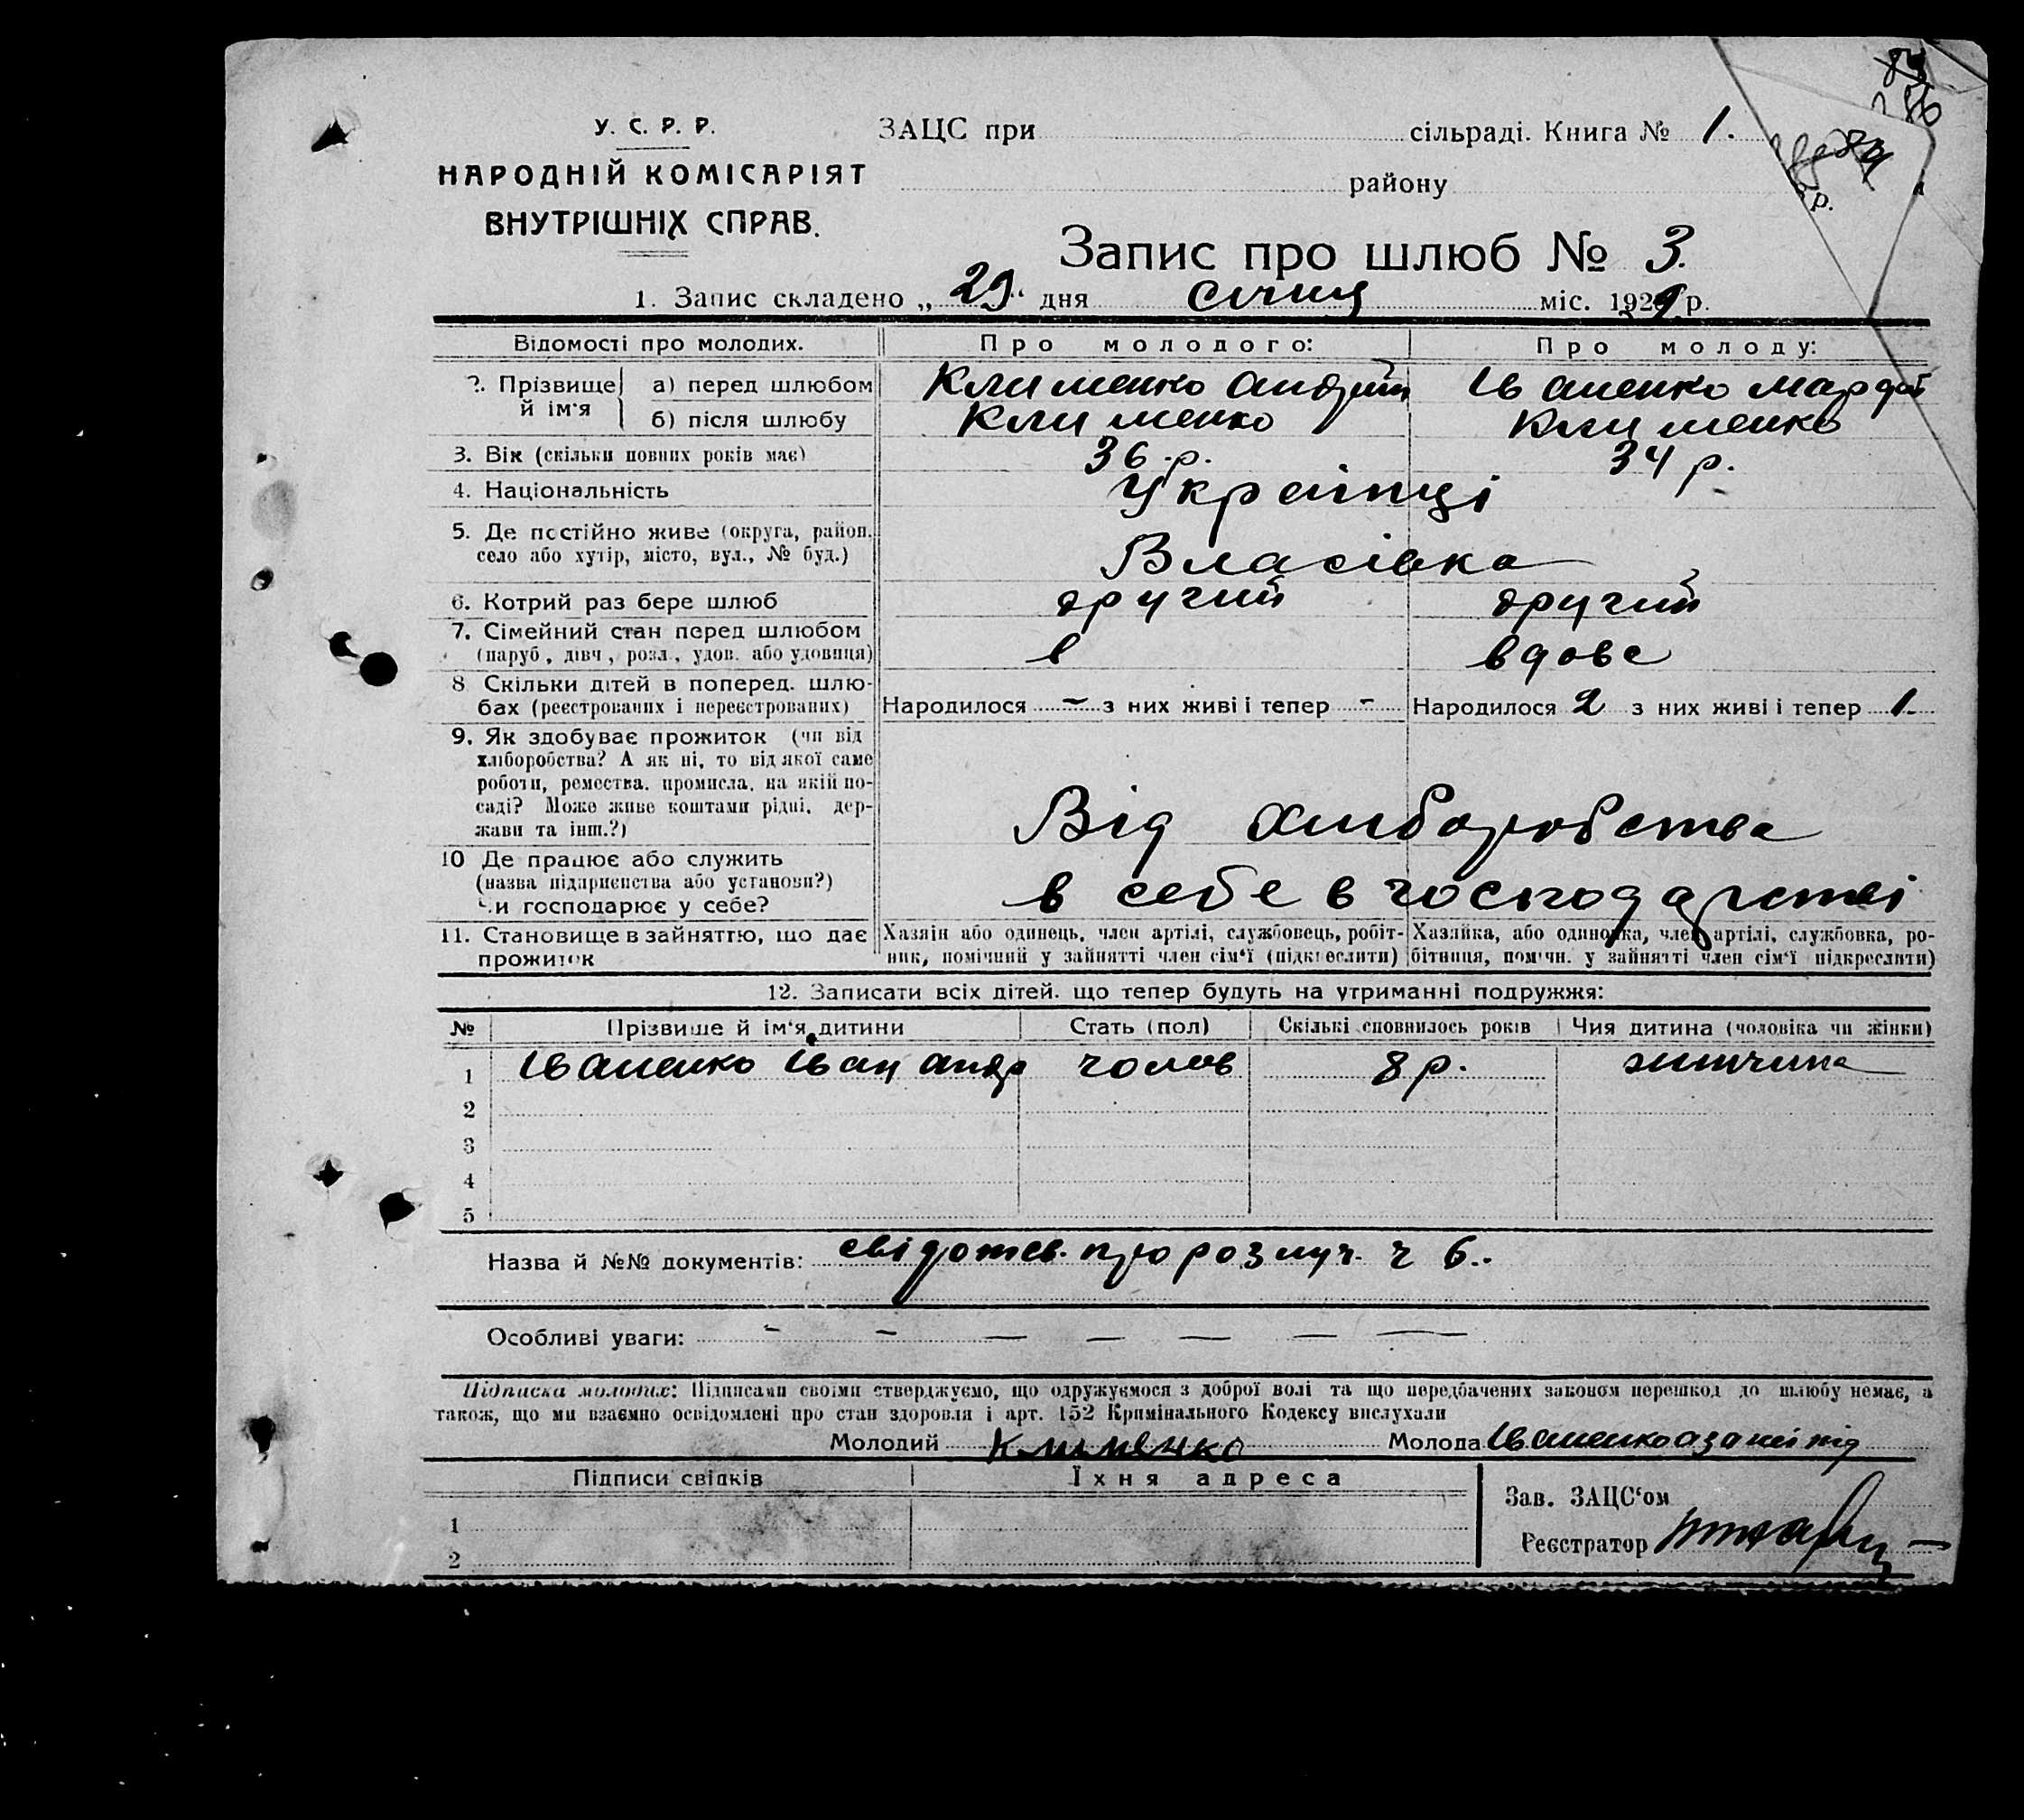 У. С. Р. Р.
НАРОДНІЙ КОМІСАРІЯТ
ВНУТРІШНІХ СПРАВ.
ЗАЦС при сільраді. Книга № 1.
району р.
Запис про шлюб № 3.
1. Запис складено „29“ дня січня міс. 1929 р.
Відомості про молодих. Про молодого: Про молоду:
2. Прізвище й ім‘я а) перед шлюбом Клименко Андрій Іваненко
б) після шлюбу Клименко Клименко
3. Вік (скільки повних років має) 36 р. 34 р.
4. Національність Українці
5. Де постійно живе (округа, район, село або хутір, місто, вул., № буд.) Власівка
6. Котрий раз бере шлюб другий другий
7. Сімейний стан перед шлюбом (паруб, дівч, розл., удов. або удовиця) в вдове
8 Скільки дітей в поперед. шлюбах (реєстрованих і нереєстрованих) Народилося - з них живі і тепер - Народилося 2 з них живі і тепер 1.
9. Як здобуває прожиток (чи від
хліборобства? А як ні, то від якої саме
роботи, ремества, промисла, на якій по-
саді? Може живе коштами рідні, дер-
жави та інш.?) Від хліборобства
10 Де працює або служить
(назва підприємства або установи?)
чи господарює у себе? в себе в господарстві
11. Становище в зайняттю, що дає прожиток
Хазяїн або одинець, член артілі, службовець, робіт-
ник, помічний у зайнятті член сім‘ї (підкреслити)
Хазяйка, або одиночка, член артілі, службовка, ро-
бітниця, помічн. у зайнятті член сім‘ї підкреслити)
12. Записати всіх дітей, що тепер будуть на утриманні подружжя:
№ Прізвише й ім‘я дитини Стать (пол) Скількі сповнилось років Чия дитина (чоловіка чи жінки)
1 Іваненко Іван Андр чолов 8 р. жінчина
2
3
4
5
Назва й №№ документів: свідотсв. про розлуч. ч 6..
Особливі уваги: - - — — — — —
Підписка молодих: Підписами своїми стверджуємо, що одружуємося з доброї волі та що передбачених законом перешкод до шлюбу немає, а
також, що ми взаємно освідомлені про стан здоровля і арт. 152 Кримінального Кодексу вислухали
Молодий Клименко Молода Іваненко
Підписи свідків Їхня адреса
1
2
Зав. ЗАЦС‘ом
Реєстратор